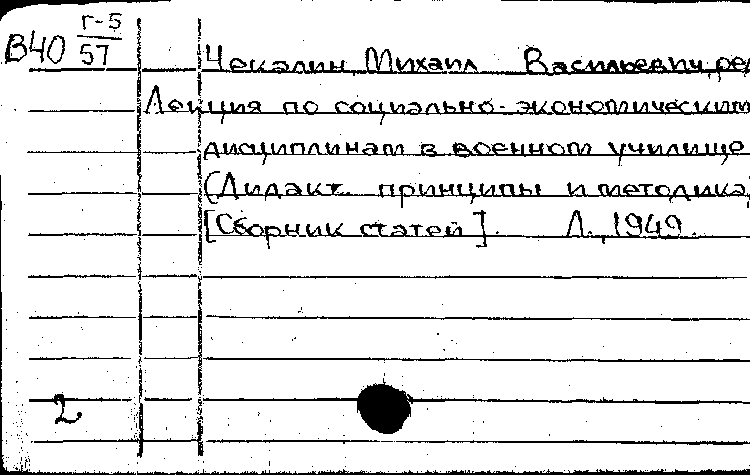 В40 Г-5/57
Чекалин, Михаил Васильевич, ред.
Лекция по социально-экономическим
дисциплинам в военном училище
(Дидакт. принципы и методика)
[Сборник статей]. Л., 1949.
2